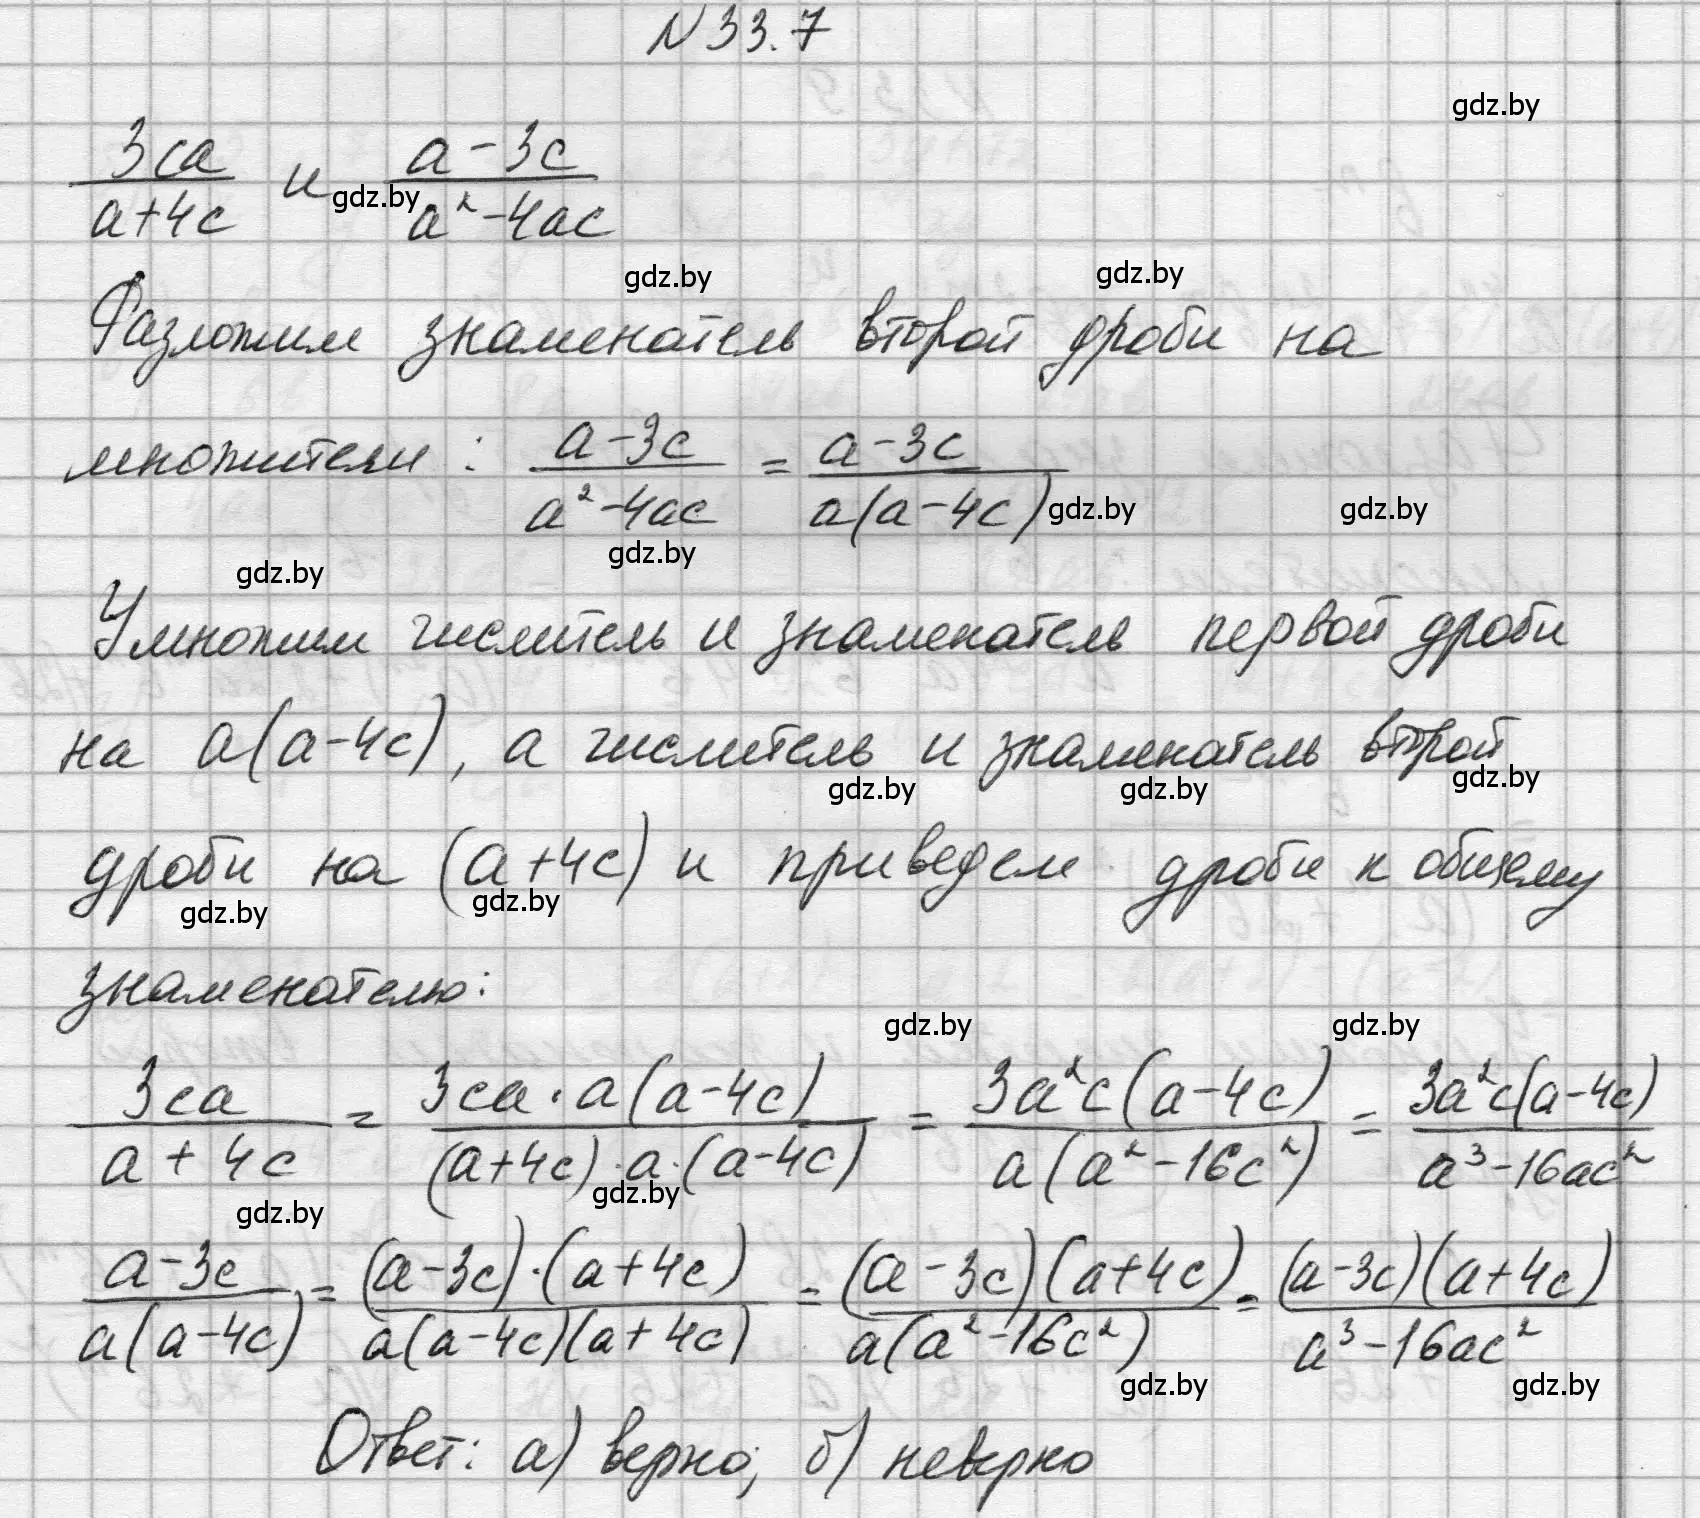 N 33.7
gdz.by
3ca/(a+4c) и (a-3c)/(a²-4ac)
gdz.by
gdz.by
gdz.by
Разложим знаменатель второй дроби на
множители: (a-3c)/(a²-4ac) = (a-3c)/(a(a-4c))
gdz.by
gdz.by
gdz.by
gdz.by
Умножим числитель и знаменатель первой дроби
на a(a-4c), а числитель и знаменатель второй
gdz.by
gdz.by
gdz.by
дроби на (a+4c) и приведем дроби к общему
gdz.by
gdz.by
знаменателю:
gdz.by
gdz.by
3ca/(a+4c) = (3ca·a(a-4c))/((a+4c)·a·(a-4c)) = (3a²c(a-4c))/(a(a²-16c²)) = (3a²c(a-4c))/(a³-16ac²)
gdz.by
gdz.by
(a-3c)/(a(a-4c)) = ((a-3c)·(a+4c))/(a(a-4c)(a+4c)) = ((a-3c)(a+4c))/(a(a²-16c²)) = ((a-3c)(a+4c))/(a³-16ac²)
gdz.by
gdz.by
Ответ: а) верно; б) неверно